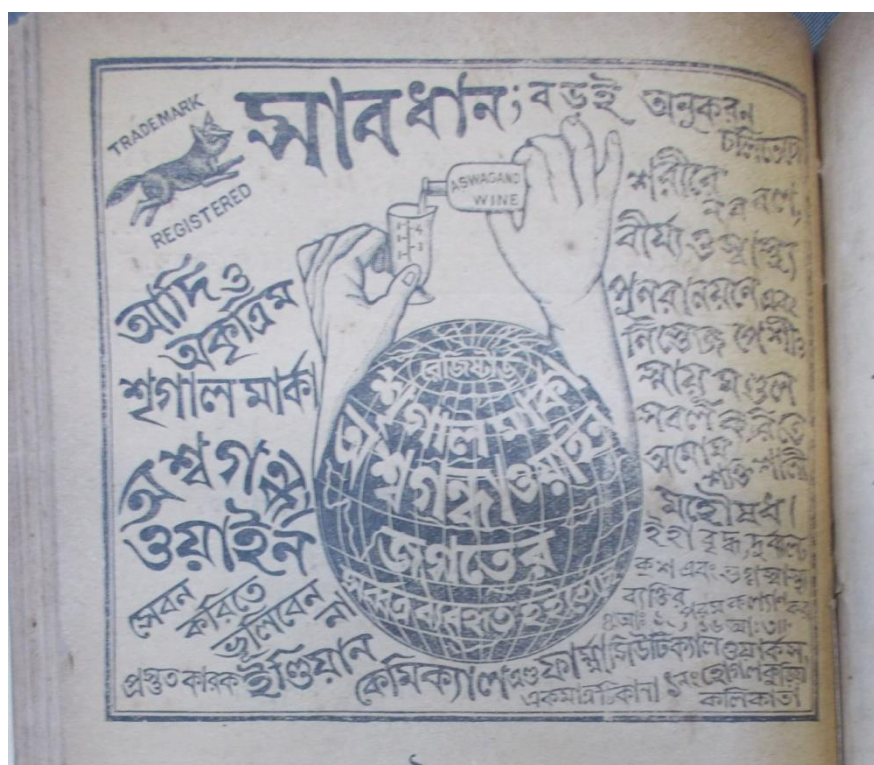 TRADEMARK
REGISTERED
সাবধান; বড়ই অনুকরন
চলিতেছে
আদি ও
অকৃত্রিম
শৃগাল মার্কা
অশ্বগন্ধা
ওয়াইন
সেবন
করিতে
ভুলিবেন না
ASWAGAND
WINE
রেজিষ্টার্ড
শৃগাল মার্কা
অশ্বগন্ধা ওয়াইন
জগতের
সর্ব্বত্র ব্যবহৃত হইতেছে
শরীরে
নব বল,
বীর্য্য ও স্বাস্থ্য
পুনরানয়নে এবং
নিস্তেজ পেশী ও
স্নায়ু মণ্ডল
সবল করিতে
অমোঘ
শক্তিশালী
মহৌষধ।
ইহা বৃদ্ধ, দুর্ব্বল,
কৃশ এবং ভগ্নস্বাস্থ্য
ব্যক্তির পরম কল্যাণ কর।
প্রস্তুত কারক ইণ্ডিয়ান কেমিক্যাল এণ্ড ফার্ম্মাসিউটিক্যাল ওয়ার্কস,
একমাত্র ঠিকানা ১নং হোগলকুড়িয়া
কলিকাতা